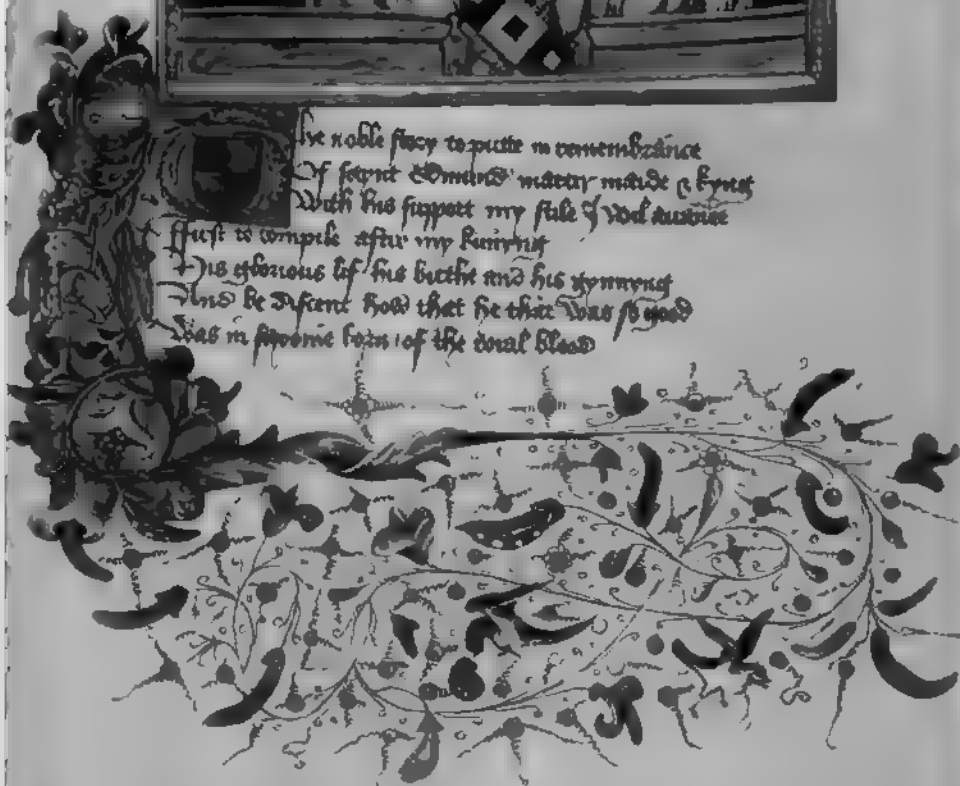 The noble story to putte in remembrance
Of seynt Edmund martir maide & kyng
With his support my stile I wil auance
First to compile aftir my kunnyng
His glorious lif his birthe and his gynnyng
And be discent how that he that was so good
Was in saxonie born of the roial blood